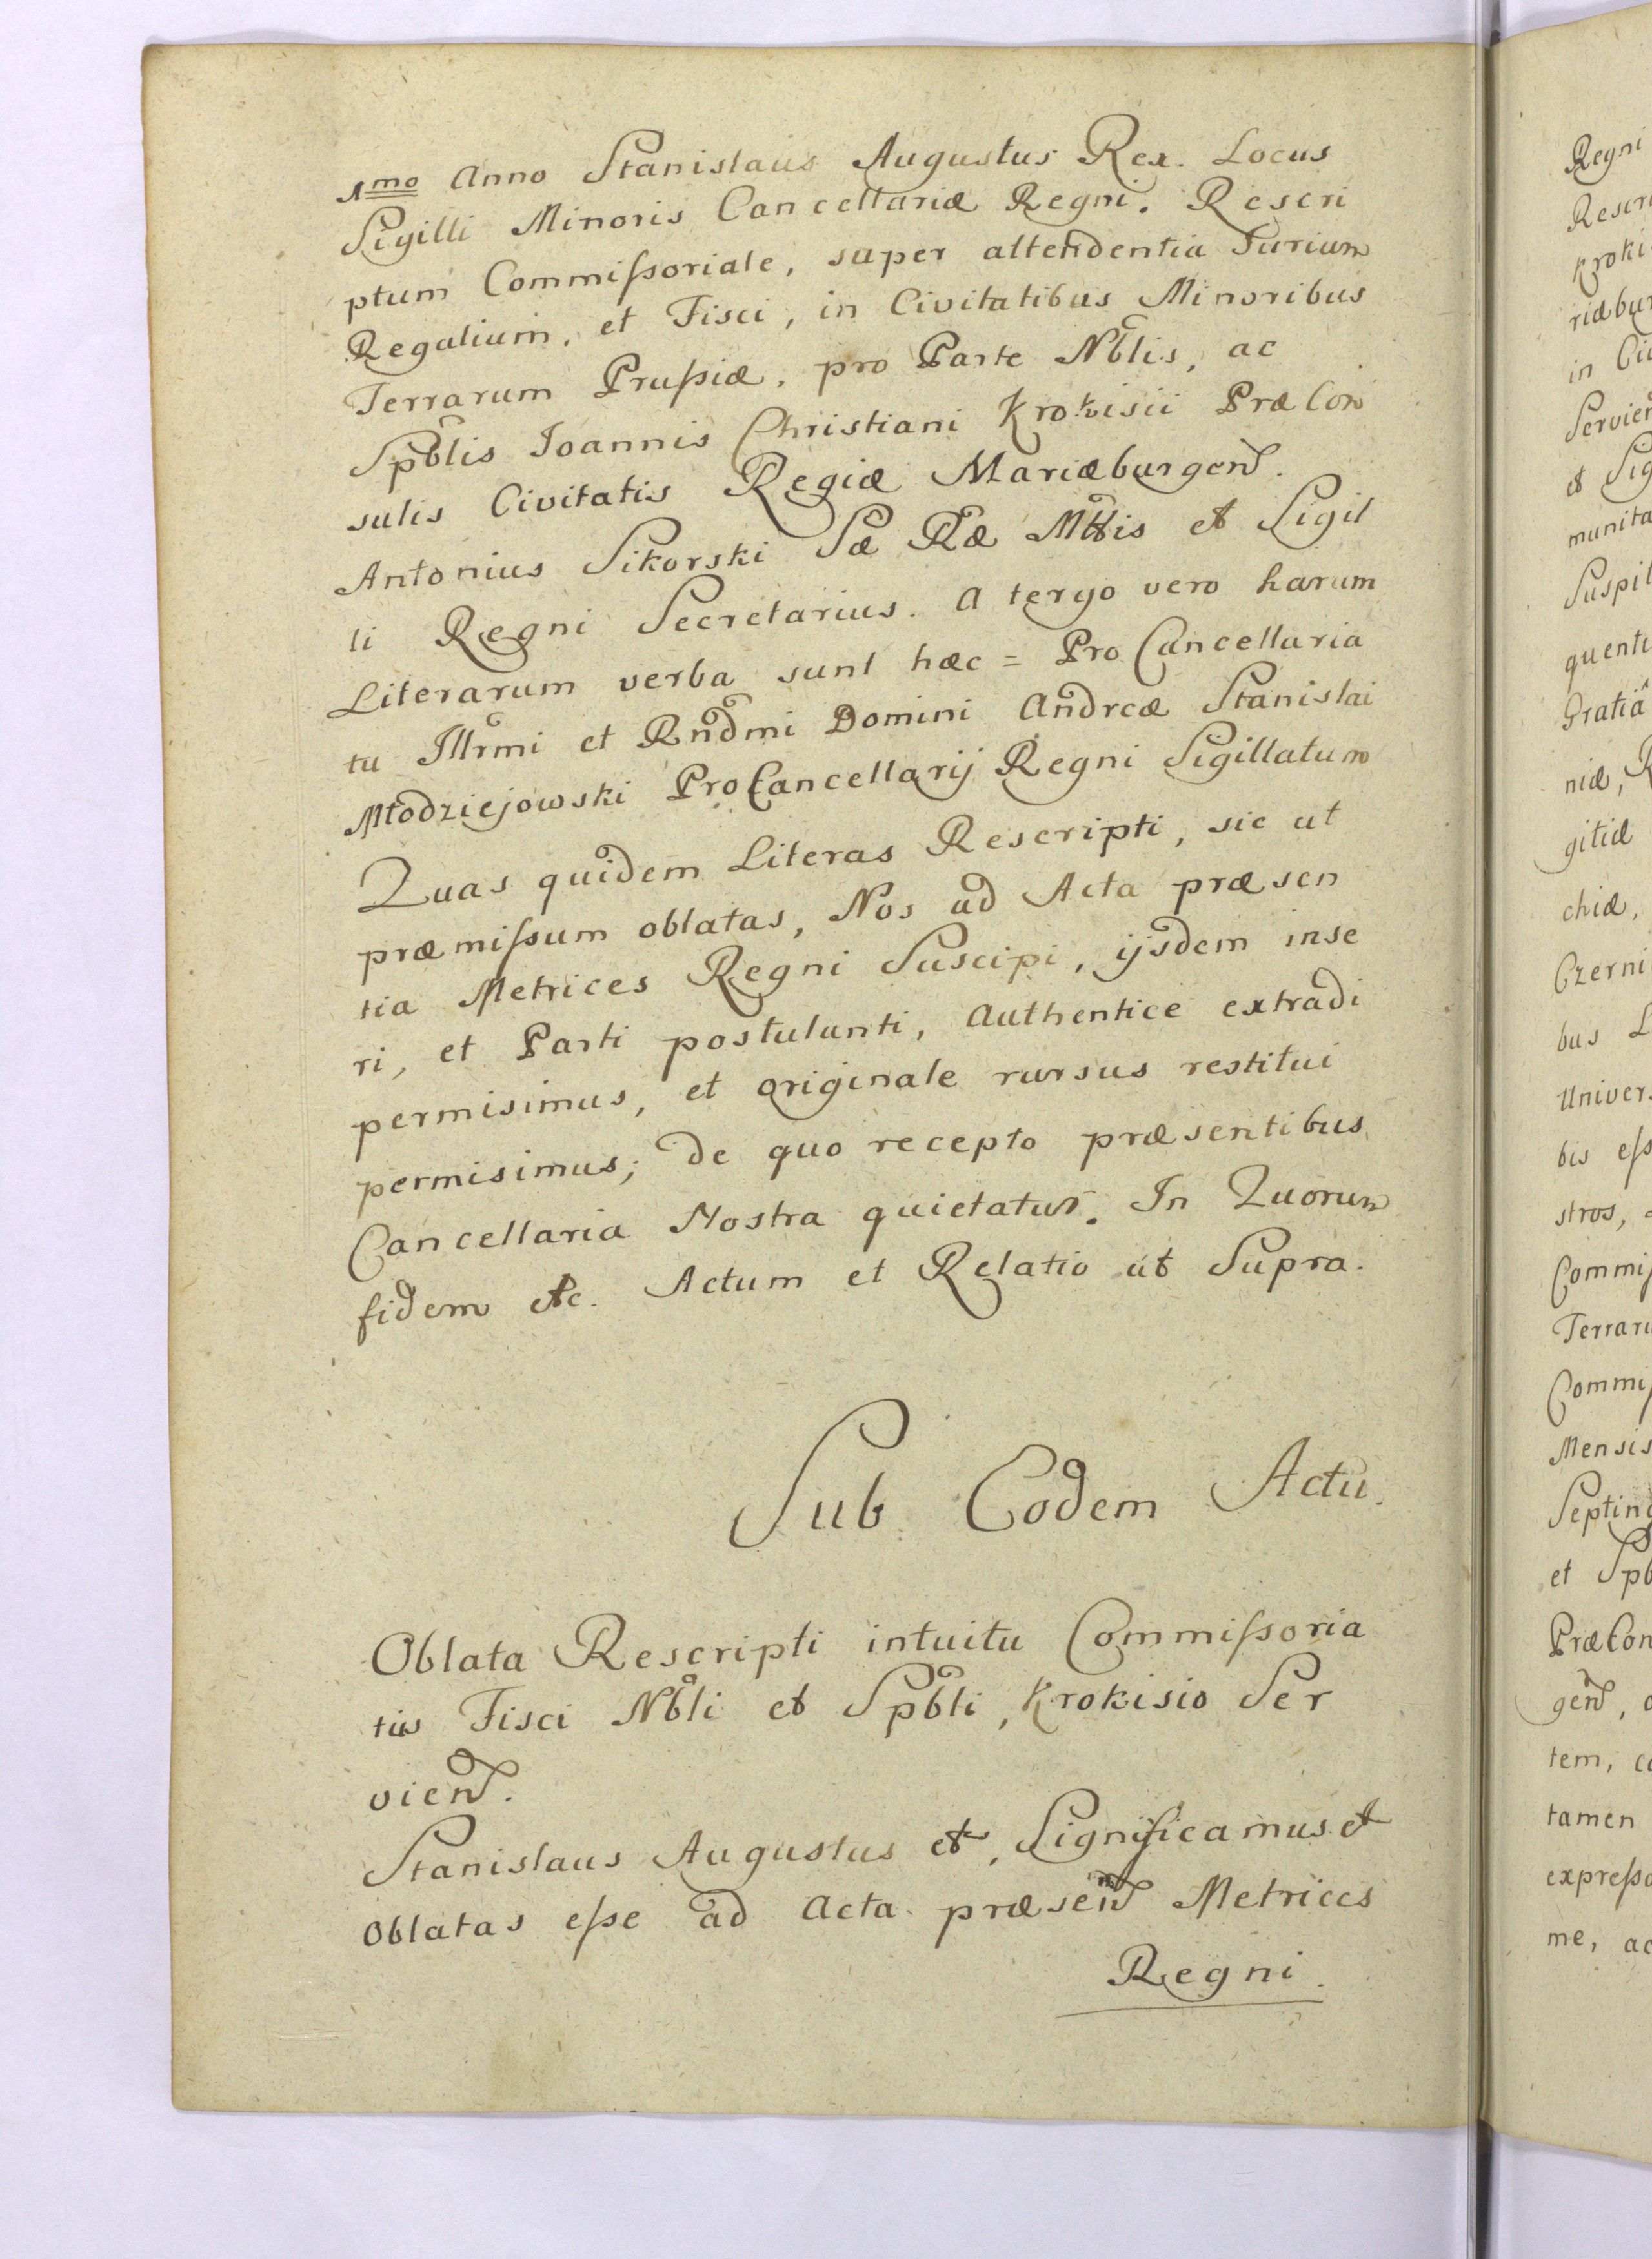 1mo Anno Stanislaus Augustus Rex. Locus
Sigilli Minoris Cancellariæ Regni. Rescri
ptum Commiſsoriale, super attendentia Jurium
Regalium, et Fisci, in Civitatibus Minoribus
Terrarum Pruſsiæ, pro Parte Nblis, ac
Spblis Ioannis Christiani Krokisii PræCon
sulis Civitatis Regiæ Mariæburgen.
Antonius Sikorski Sæ Ræ Mttis et Sigil
li Regni Secretarius. A tergo vero harum
Literarum verba sunt hæc = Pro Cancellaria
tu Illrmi et Rndmi Domini Andreæ Stanislai
Młodziejowski ProCancellarij Regni Sigillatum
Quas quidem Literas Rescripti, sic ut
præmiſsum oblatas, Nos ad Acta præsen
tia Metrices Regni Suscipi, ijsdem inse
ri, et Parti postulanti, Authentice extradi
permisimus, et originale rursus restitui
permisimus; de quo recepto præsentibus
Cancellaria Nostra quietatur. In Quorum
fidem etc. Actum et Relatio ut Supra.
Sub Eodem Actu.
Oblata Rescripti intuitu Commiſsoria
tus Fisci Nbli et Spbli, Krokisio Ser
vien.
Stanislaus Augustus et, Significamus et
Oblatas eſse ad Acta præsen Metrices
Regni.
Regni
Rescri
Kroki
riæbur
in Ci
Servien
et Sig
munita
Suspi
quenti
Gratiâ
niæ, R
gitiæ
chiæ,
Czerni
bus L
Univers
bis eſs
stros,
Commiſ
Terraru
Commiſ
Mensis
Septing
et Spb
PræCon
gen,
tem, co
tamen
expreſso
me, ac